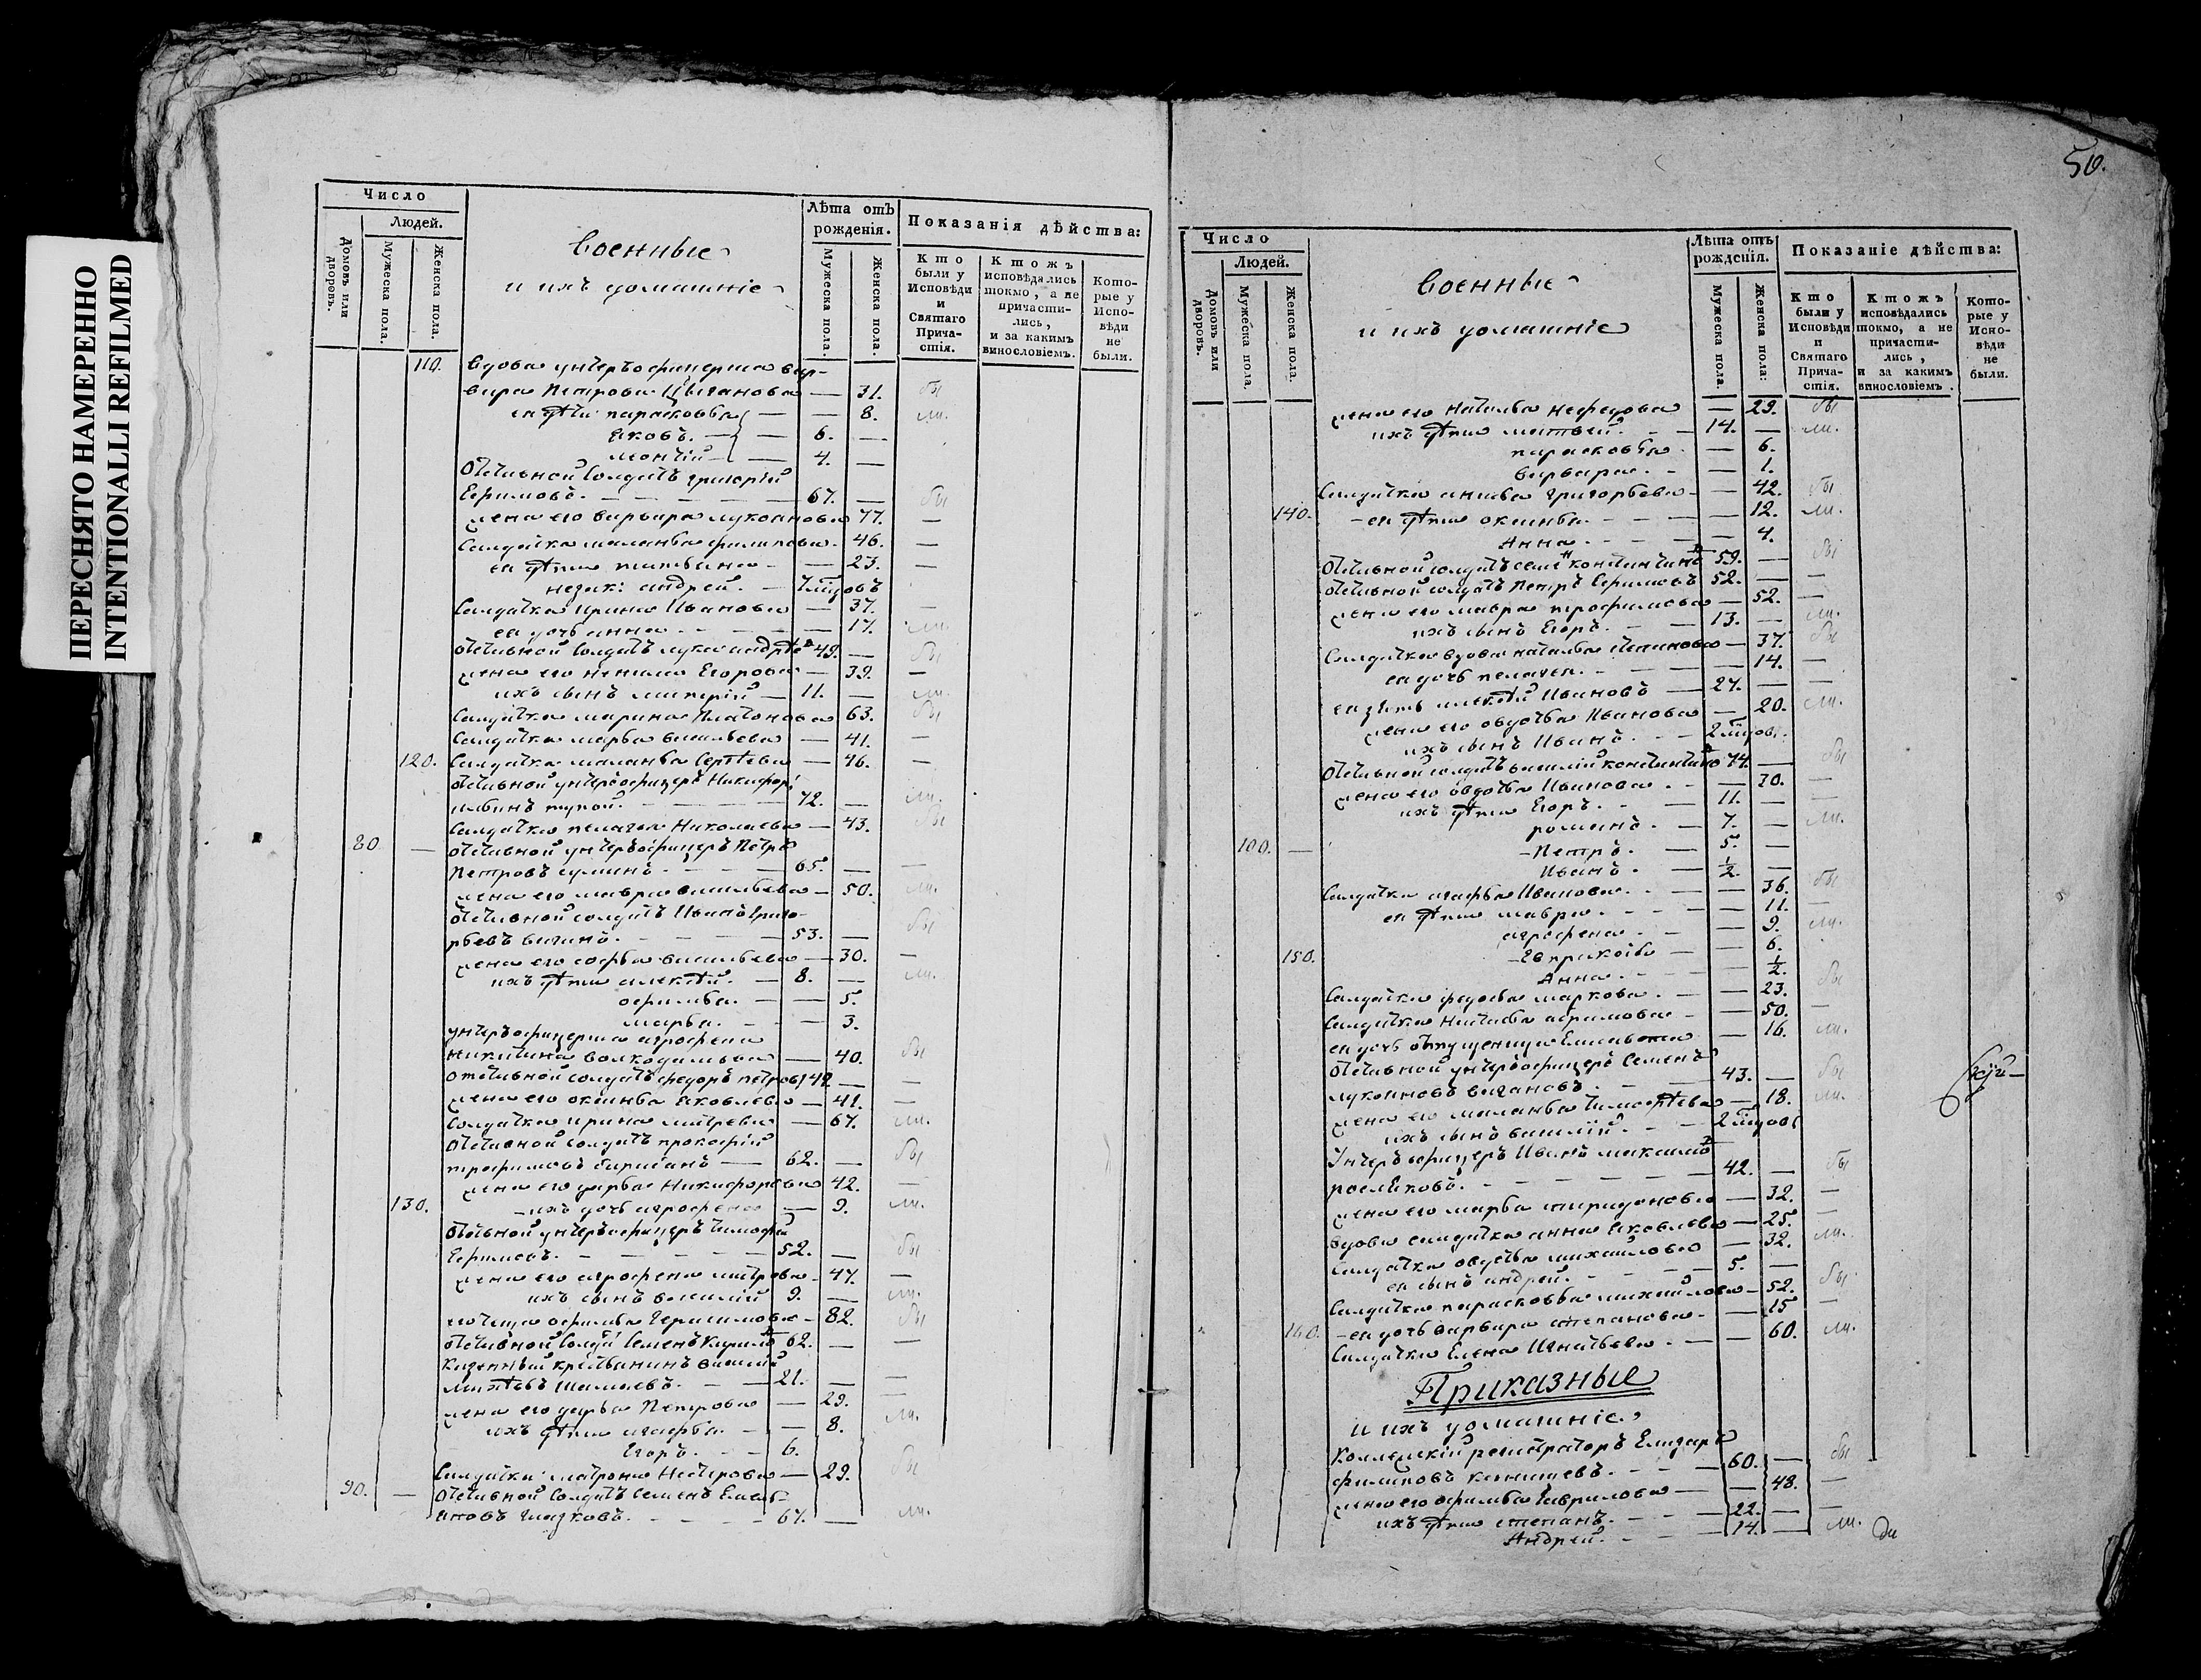 ПЕРЕСНЯТО НАМЕРЕННО
INTENTIONALLI REFILMED
50.
Число
Людей.
Домовъ или дворовъ.
Мужеска пола.
Женска пола.
военные
и ихъ домашніе
Лѣта отъ рожденія.
Мужеска пола.
Женска пола.
Показанія дѣйства:
Кто были у Исповѣди и Святаго Причастія.
Ктожъ исповѣдались токмо, а не причастились, и за какимъ винословіемъ.
Которые у Исповѣди не были.
110. вдова унтеръофицерша вар-
вара Петрова Цыганова — 31. бы
ея дѣти парасковья — — 8. ли.
Яковъ. — — 6. —
— 4. —
отставной солдатъ григорій
Ефимовъ. — 67. — бы
жена его варвара лукоянова 77. —
Салдатка маланья филипова. 46. —
ея дѣти татьяна — — 23. —
андрей. —
Салдатка Ирина Иванова — 37. —
ея дочь анна — 17. ли.
отставной солдатъ лука андрѣевъ 49. — бы
жена его Ненила Егорова — 39. —
ихъ сынъ — 11. — ли.
Салдатка марина Платонова 63. бы
Салдатка марья васильева — 41. —
120. Салдатка маланья Сергѣева — 46. —
отставной унтеръофицеръ Никифоръ
72. — ли.
Салдатка пелагея Николаева — 43. бы
80 — отставной унтеръофицеръ Петръ
Петровъ — 65. —
жена его мавра васильева — 50. ли.
отставной солдатъ Иванъ Григо-
рьевъ — 53. — бы
жена его софья васильева — 30. —
ихъ дѣти алексѣй. — 8. — ли.
офимья. — — 5.
марья. — — 3.
унтеръофицерша агрофена
никитина — 40. бы
отставной солдатъ федоръ петровъ 42 — —
жена его оксинья Яковлева — 41. —
Солдатка ирина митрева — 67. ли.
отставной солдатъ прокофій
трофимовъ — 62. — бы
жена его дарья Никифорова 42. —
130. — ихъ дочь агрофена — 9. ли.
отставной унтеръофицеръ тимофей
Ефимовъ. — 52. — бы
жена его агрофена митрова — 47. —
ихъ сынъ василій 9. — ли.
его теща офимья Герасимова — 82. бы
отставной солдатъ Семенъ 62. — —
казенный крестьянинъ василій
21. — —
жена его дарья Петрова — 29. —
ихъ дѣти агафья — — 8. ли.
Егоръ. — 6.
Салдатка матрона Нестерова — 29. бы
90. — отставной солдатъ семенъ Емель-
яновъ — 67. — ли.
Число
Людей.
Домовъ или дворовъ.
Мужеска пола.
Женска пола.
военные
и ихъ домашніе
Лѣта отъ рожденія.
Мужеска пола.
Женска пола:
Показаніе дѣйства:
Кто были у Исповѣди и Святаго Причастія.
Ктожъ исповѣдались токмо, а не причастились, и за какимъ винословіемъ.
Которые у Исповѣди не были.
жена его Наталья нефедова — 29. бы
ихъ дѣти матвей. — 14. — ли.
парасковья — — 6.
варвара. — — 1.
Салдатка анисья григорьева — — 42. бы
140. — ея дѣти оксинья. — — 12. ли.
Анна — — 4.
отставной солдатъ 59. — бы
отставной солдатъ Петръ 52. — —
жена его мавра трофимова — 52. —
ихъ сынъ Егоръ. — 13. — ли.
Салдатка вдова наталья степанова — 37. бы
ея дочь пелагея. — — 14. —
ея зять алексѣй Ивановъ — 27. — —
жена его овдотья Иванова — 20. ли.
ихъ сынъ Иванъ. — 2
отставной солдатъ василій константиновъ 74. — бы
жена его овдотья Иванова — — 30. —
ихъ дѣти Егоръ. — 11. — —
романъ. — 7. — ли.
100. — — Петръ. — 5. —
Иванъ. — ½. —
Салдатка агафья Иванова. — — 36. бы
ея дѣти мавра. — — 11. —
агрофена — — 9. ли.
150. — 6.
Анна. — — ½.
Салдатка федосья маркова. — — 23. бы
Салдатка — — 50. —
ея дочь — 16. ли.
отставной унтеръофицеръ Семенъ
лукояновъ — 43. — бы
жена его маланья тимофѣева — 18. ли.
ихъ сынъ василій. — 2
Унтеръофицеръ Иванъ максимовъ
— 42. — бы
жена его марья спиридонова — 32. —
вдова салдатка анна Яковлева — 25. —
Салдатка овдотья михайлова — 32. ли.
ея сынъ андрей. — 5. —
Салдатка парасковья михайлова — 52. бы
— ея дочь варвара степанова — 15 —
160. Салдатка Елена Игнатьева — — 60. ли.
Приказные
и ихъ домашніе.
Коллежскій регистраторъ Елизаръ
филиповъ — 60. — бы
жена его офимья Гаврилова — 48. —
ихъ дѣти степанъ. — 22. — —
Андрей. — 14. — ли.